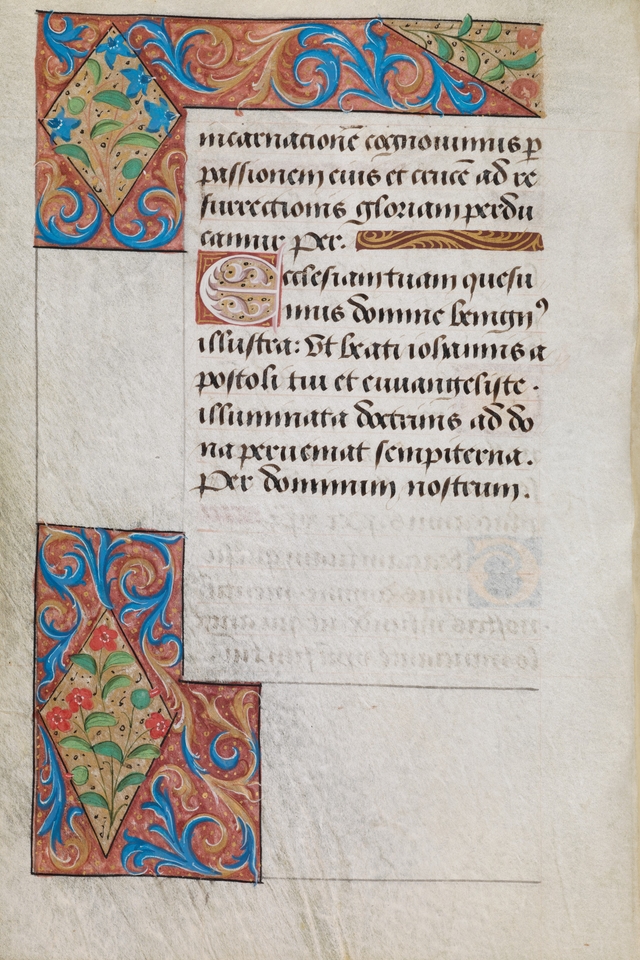 incarnacionē cognouimus p̱
passionem eius et crucē ad re
surrectionis gloriam perdu
camur per.
Ecclesiam tuam quesu
mus domine benignꝰ
illustra: Vt beati iohannis a
postoli tui et euuangeliste .
illuminata doctrinis ad do
na perueniat sempiterna.
Per dominum nostrum.